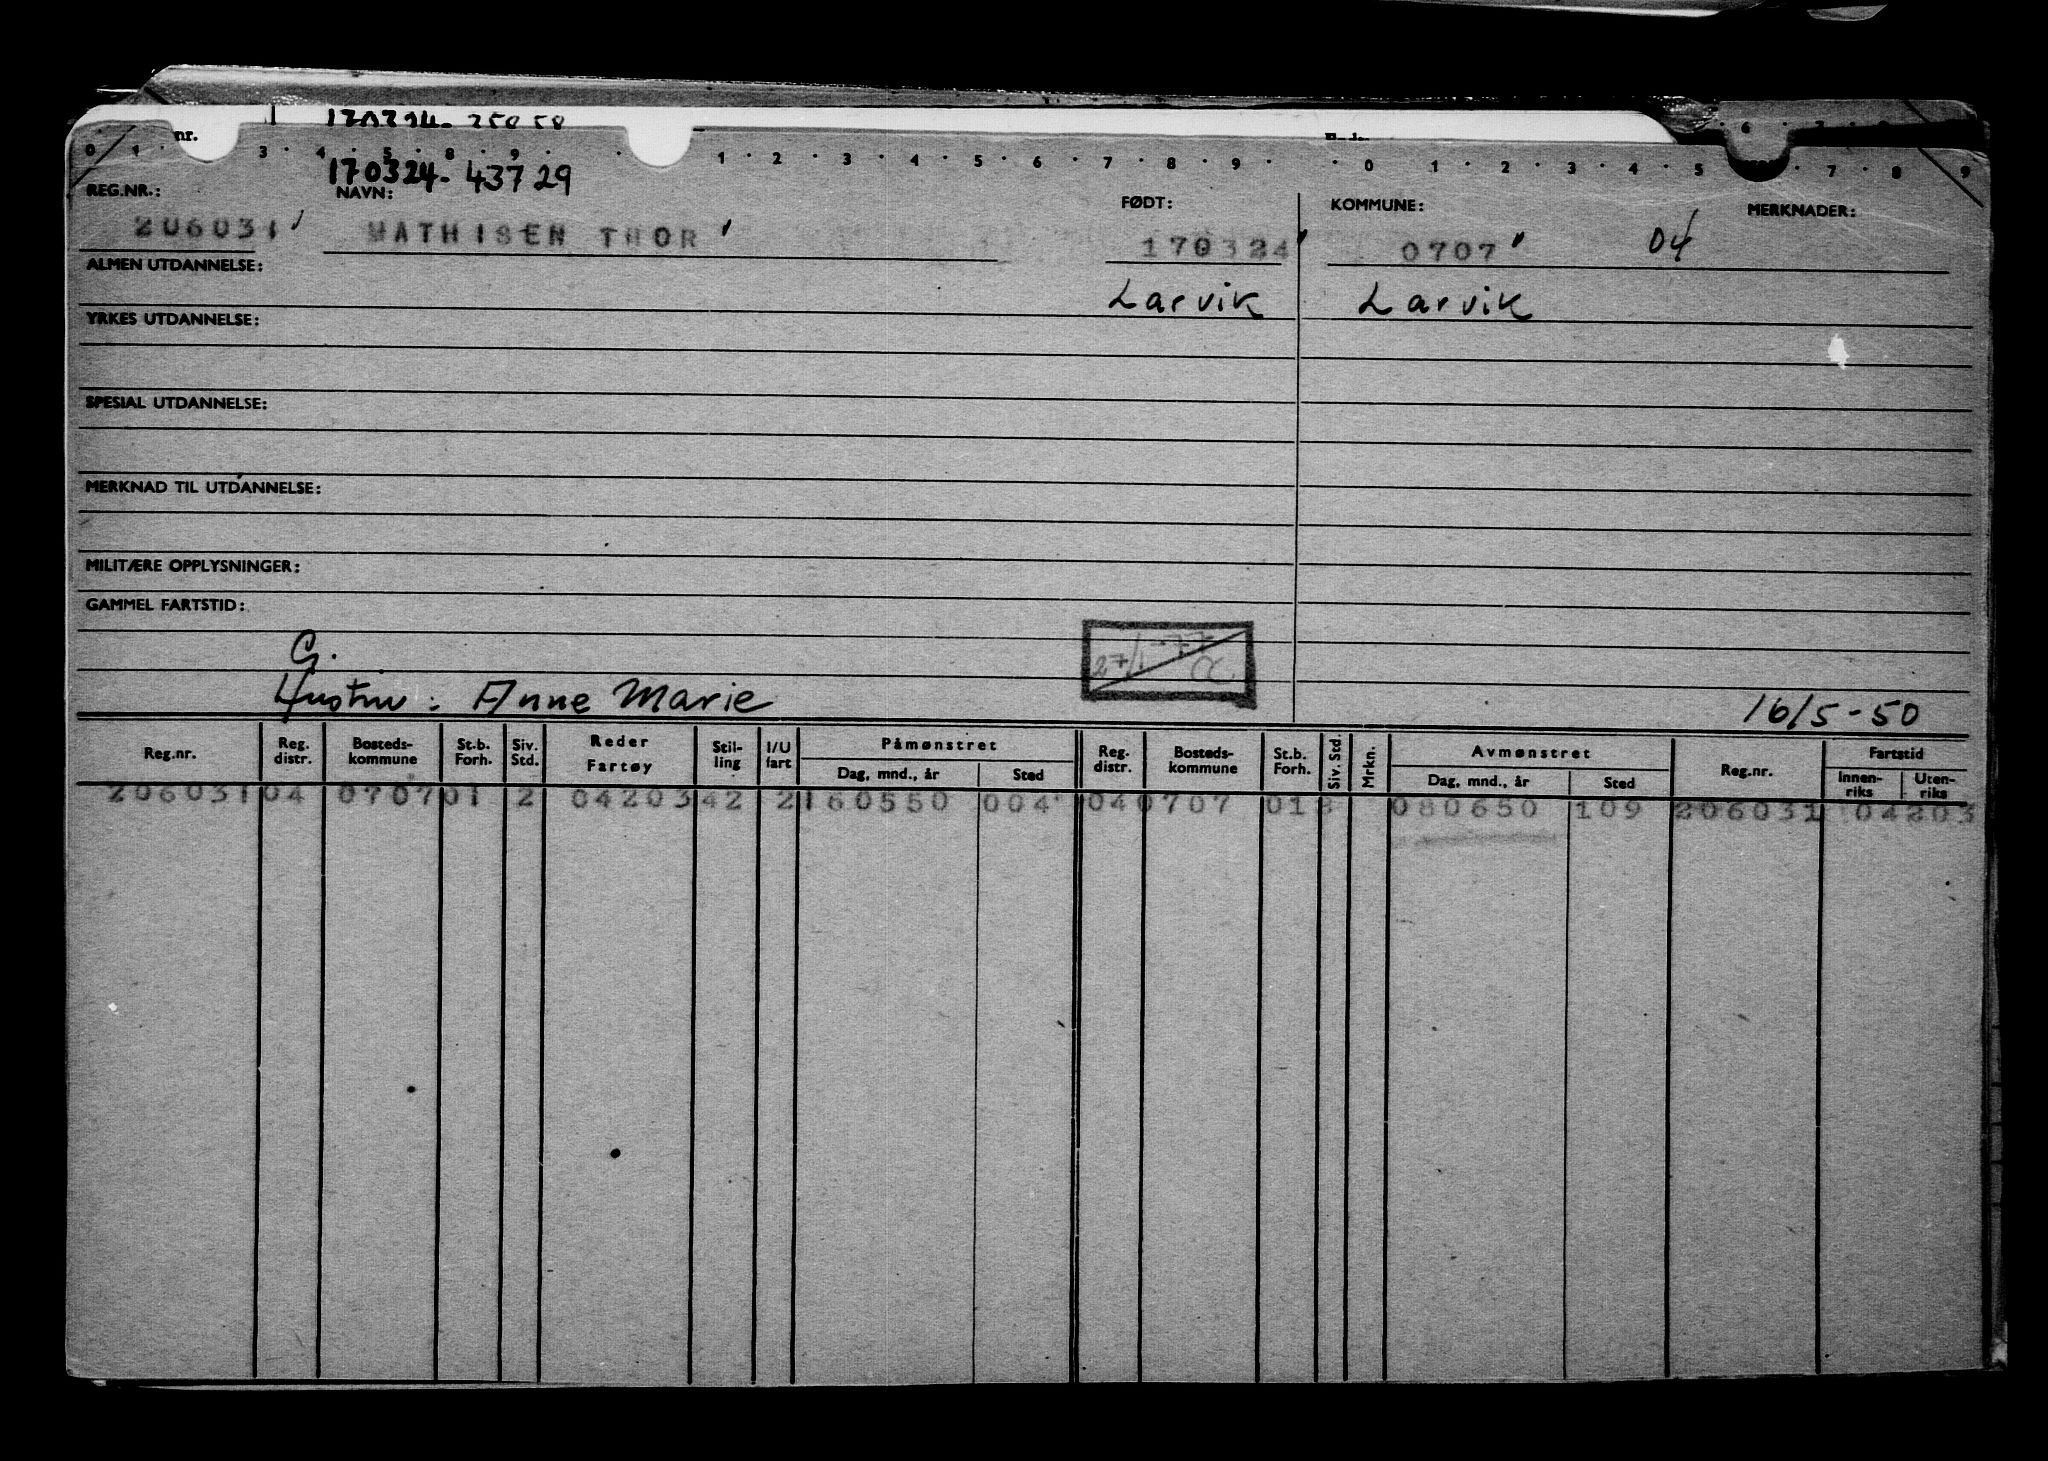 nr. 170324- 25858
0 1 3 4 5 8 9 1 2 3 4 5 6 7 8 9 0 1 2 3 4 5 7 8 9
170324- 43729
REG.NR.: NAVN: FØDT: KOMMUNE: MERKNADER:
206031 MATHISEN THOR 170324 0707 04
ALMEN UTDANNELSE:
Larvik Larvik
YRKES UTDANNELSE:
SPESIAL UTDANNELSE:
MERKNAD TIL UTDANNELSE:
MILITÆRE OPPLYSNINGER:
GAMMEL FARTSTID:
G. 27/1-77
Hustru: Anne Marie 16/5-50
Reg.nr. Reg. distr. Bosteds- kommune St.b. Forh. Siv. Std. Reder Fartøy Stil- ling I/U fart Påmønstret Dag, mnd., år Sted Reg. distr. Bosteds- kommune St.b. Forh. Siv. Std. Mrkn. Avmønstret Dag, mnd., år Sted Reg.nr. Fartstid Innen- riks Uten- riks
206031 04 0707 01 2 04203 42 2 160550 004 04 0707 01 080650 109 206031 04203